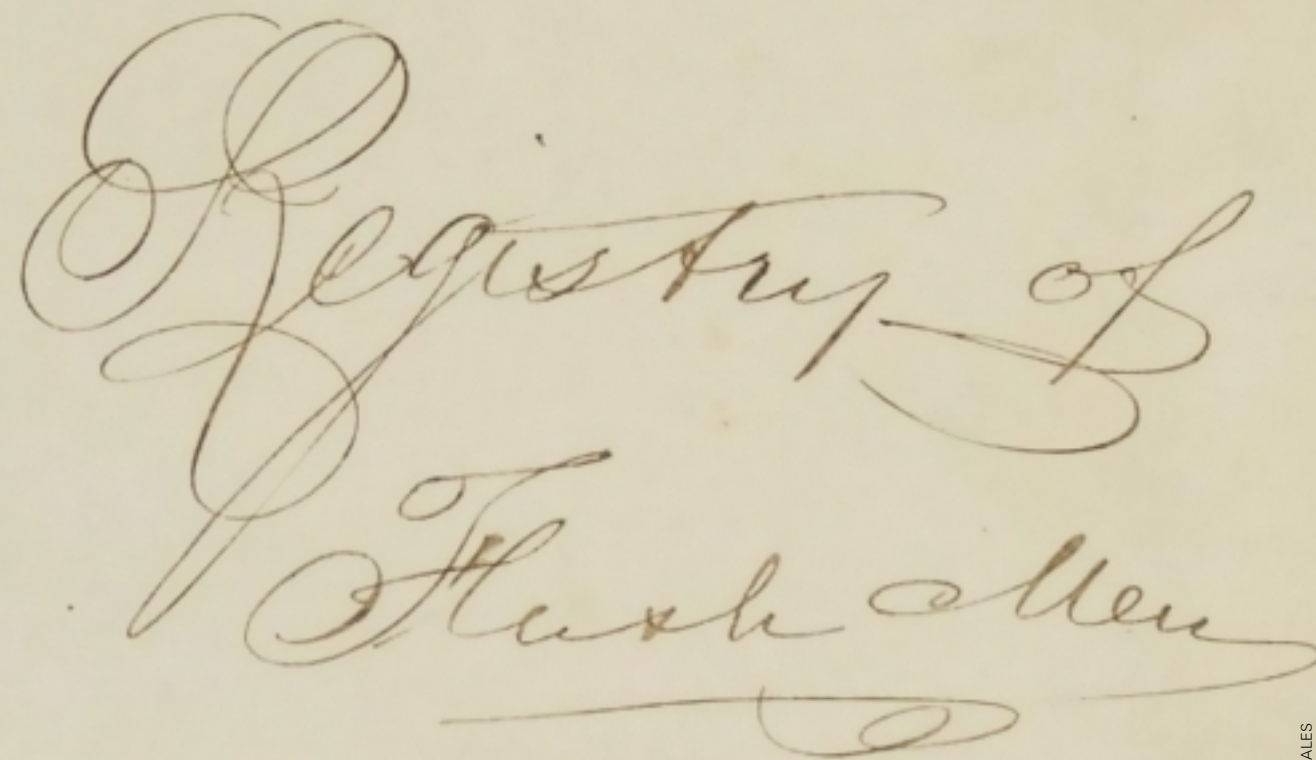 Registry of
Flush Men
ALES